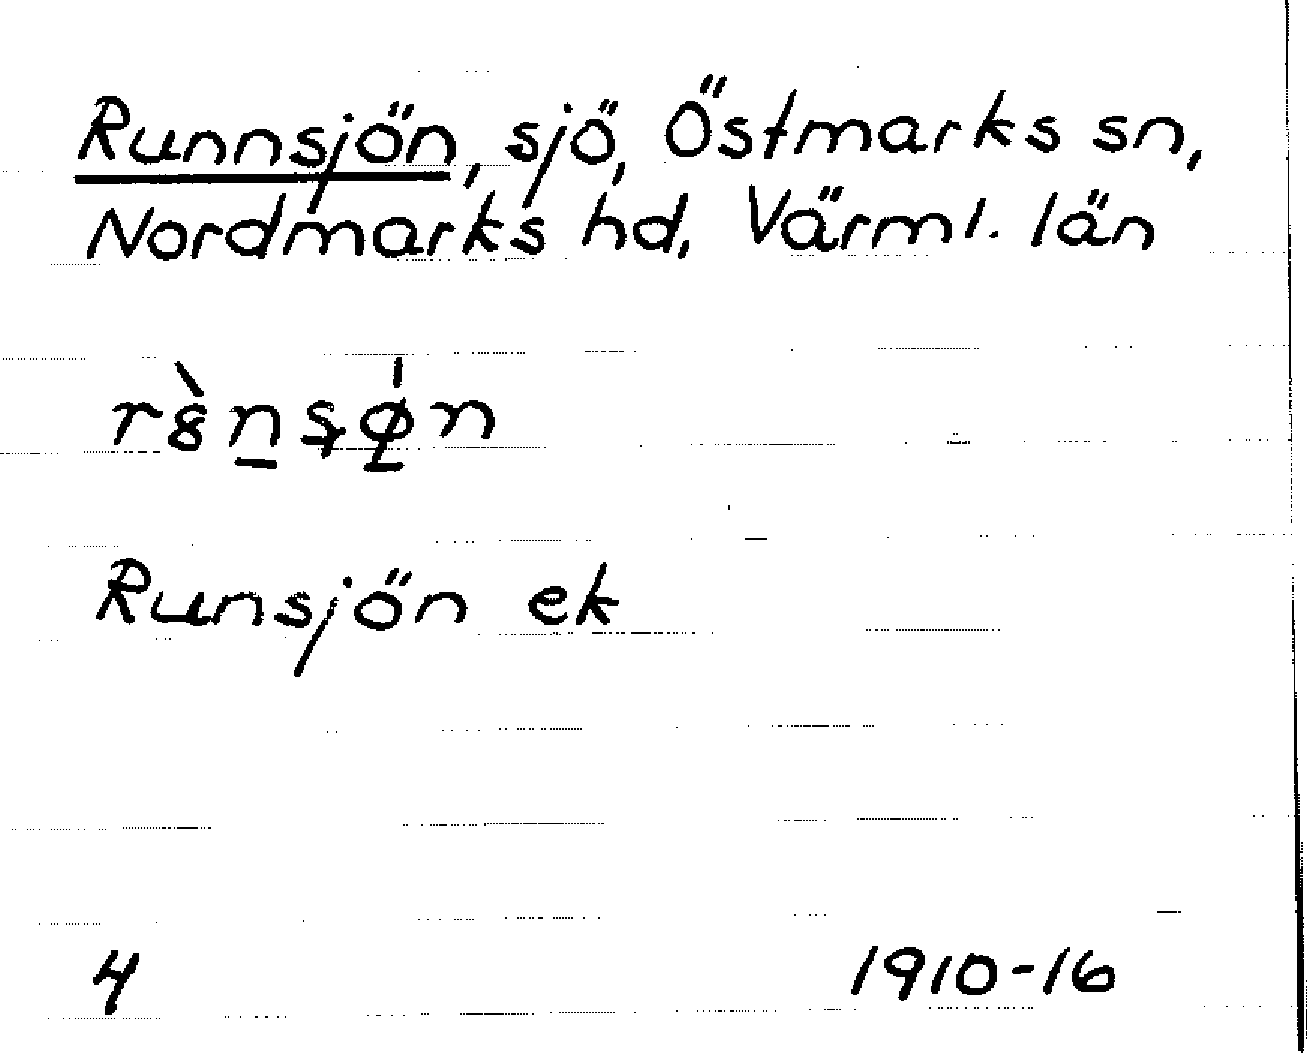 Runnsjön, sjö, Östmarks sn,
Nordmarks hd, Värml. län
Runsjön ek
4 1910-16